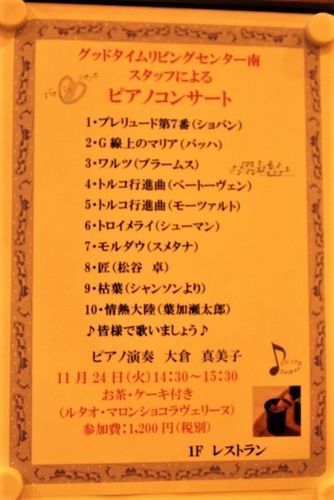 グッドタイムリビングセンター南
スタッフによる
ピアノコンサート
1・プレリュード第7番(ショパン)
2・G線上のマリア(バッハ)
3・ワルツ(ブラームス)
4・トルコ行進曲(ベートーヴェン)
5・トルコ行進曲(モーツァルト)
6・トロイメライ(シューマン)
7・モルダウ(スメタナ)
8・匠(松谷 卓)
9・枯葉(シャンソンより)
10・情熱大陸(葉加瀬太郎)
♪皆様で歌いましょう♪
ピアノ演奏 大倉 真美子
11月24日(火)14:30~15:30
お茶・ケーキ付き
(ルタオ・マロンショコラヴェリーヌ)
参加費:1,200円(税別)
1F レストラン